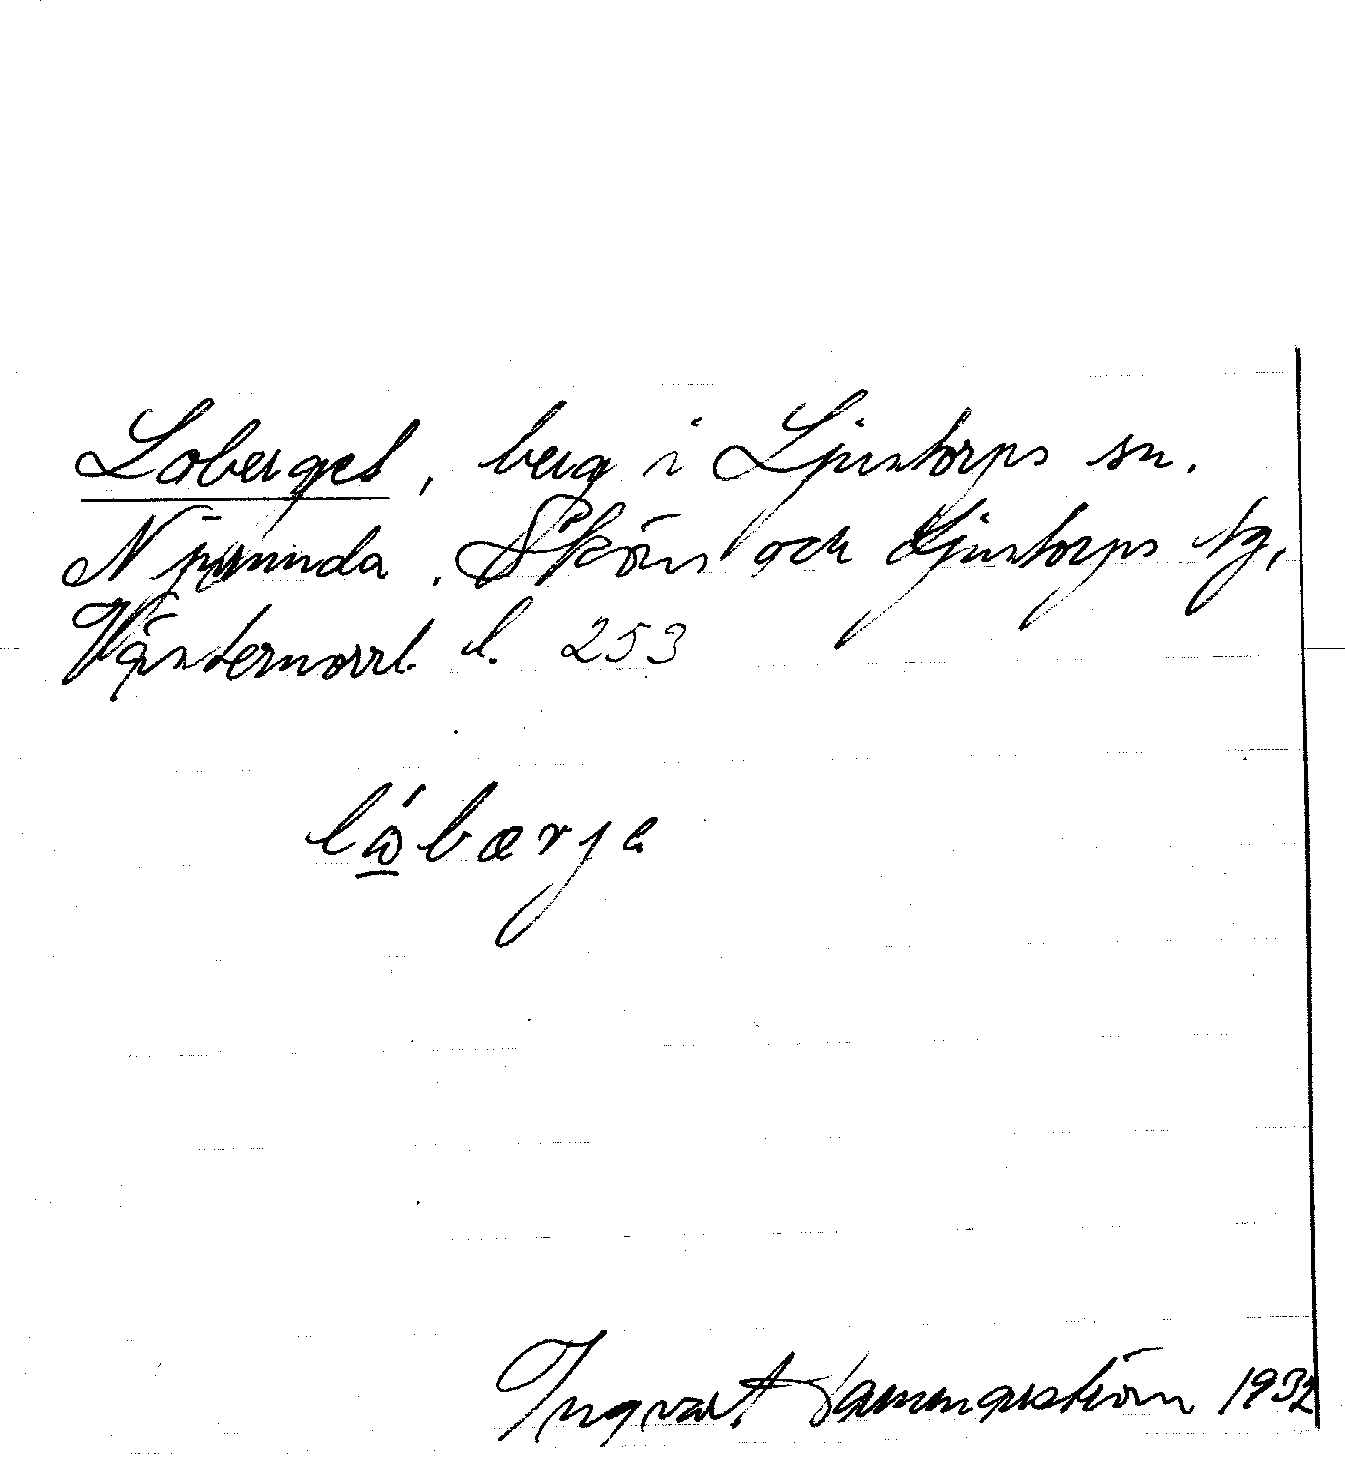 Loberget, berg i Ljustorps sn.
Njurunda, Sköns och Ljustorps tg,
Västernorrl. l. 253
lώ̲bærje
Ingvar 1932